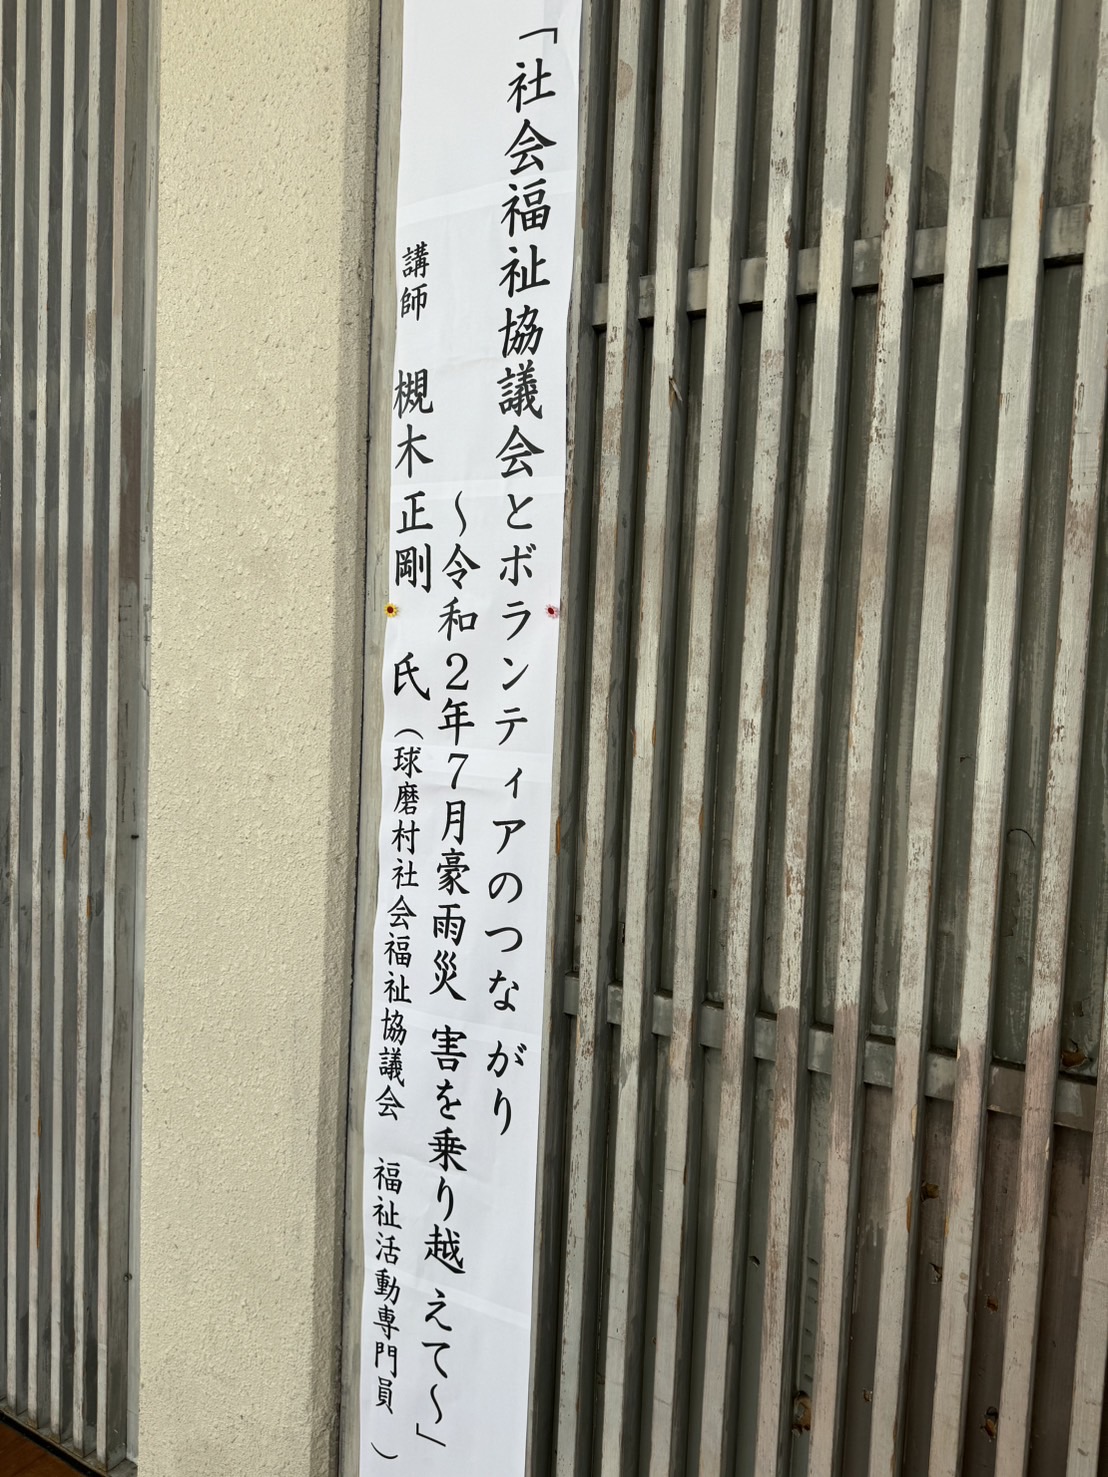 「社会福祉協議会とボランティアのつながり
～令和2年7月豪雨災害を乗り越えて～」
講師　槻木正剛　氏（球磨村社会福祉協議会　福祉活動専門員）